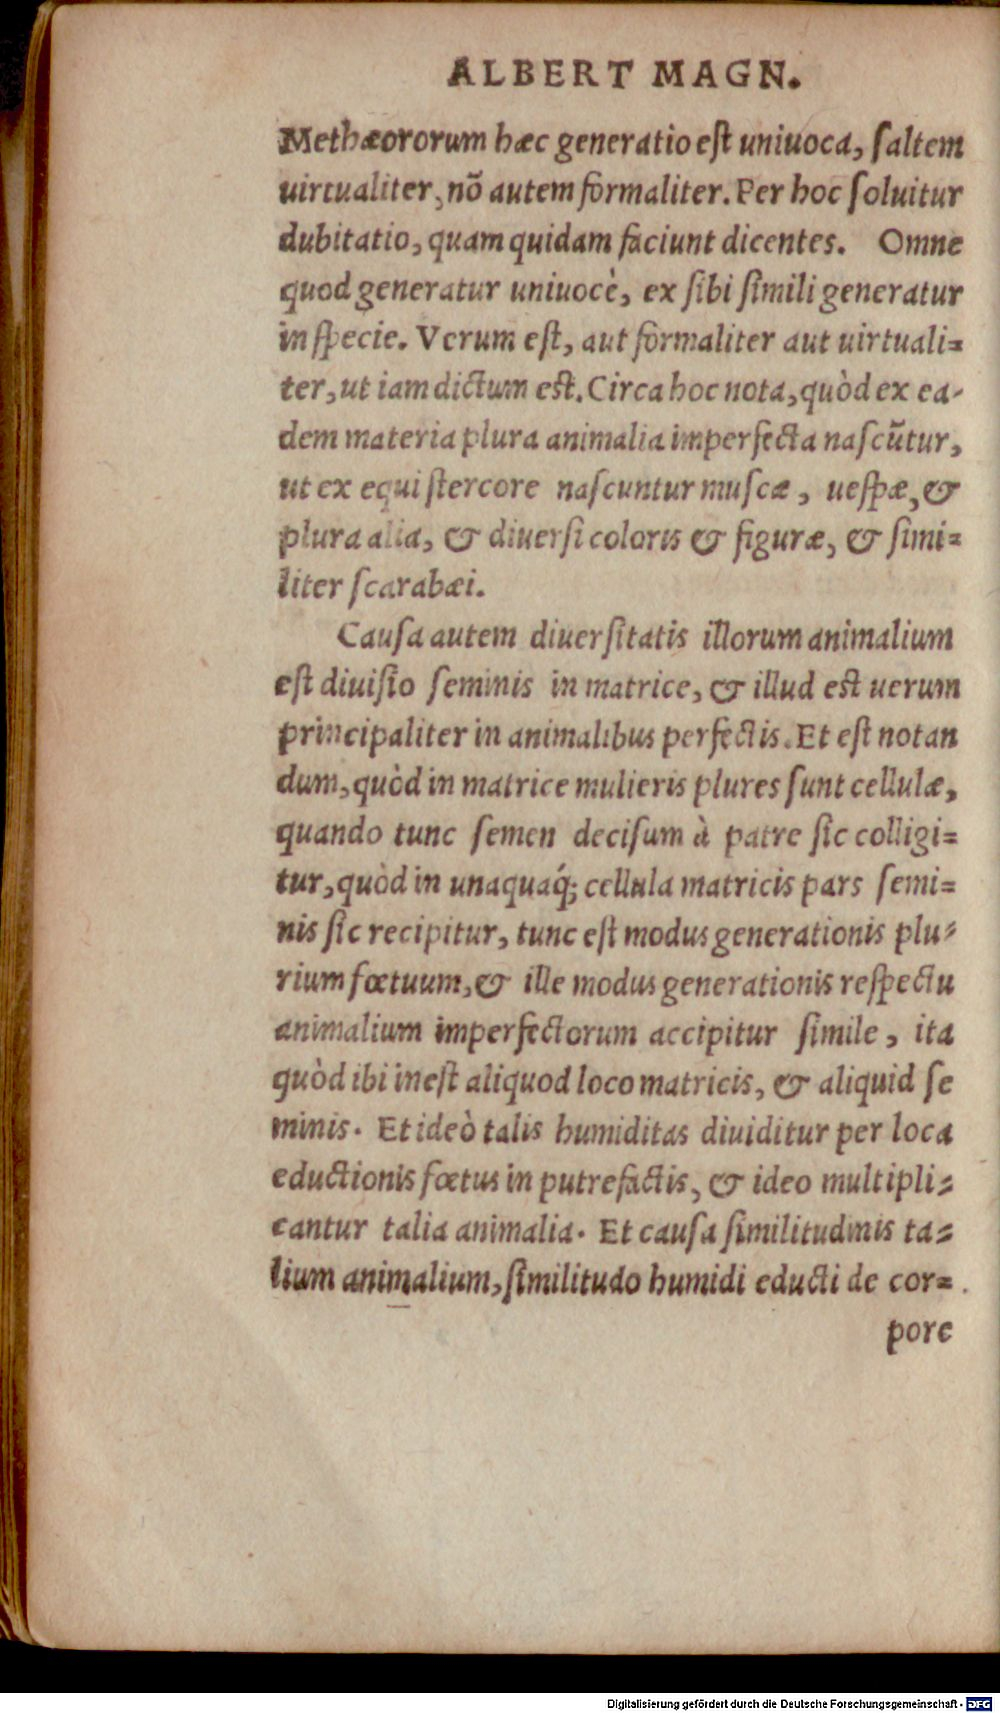 ALBERT MAGN.
Methæororum hæc generatio est uniuoca, saltem
uirtualiter, nõ autem formaliter. Per hoc soluitur
dubitatio, quam quidam faciunt dicentes. Omne
quod generatur uniuocè, ex sibi simili generatur
in specie. Verum est, aut formaliter aut uirtuali=
ter, ut iam dictum est. Circa hoc nota, quòd ex ea-
dem materia plura animalia imperfecta nascũtur,
ut ex equi stercore nascuntur muscæ, uespæ, &
plura alia, & diuersi coloris & figuræ, & simi=
liter scarabæi.
Causa autem diuersitatis illorum animalium
est diuisio seminis in matrice, & illud est uerum
principaliter in animalibus perfectis. Et est notan
dum, quòd in matrice mulieris plures sunt cellulæ,
quando tunc semen decisum à patre sic colligi=
tur, quòd in unaquaq́; cellula matricis pars semi=
nis sic recipitur, tunc est modus generationis plu=
rium fœtuum, & ille modus generationis respectu
animalium imperfectorum accipitur simile, ita
quòd ibi inest aliquod loco matricis, & aliquid se
minis. Et ideò talis humiditas diuiditur per loca
eductionis fœtus in putrefactis, & ideo multipli=
cantur talia animalia. Et causa similitudinis ta=
lium animalium, similitudo humidi educti de cor=
pore
Digitalisierung gefördert durch die Deutsche Forschungsgemeinschaft - DFG